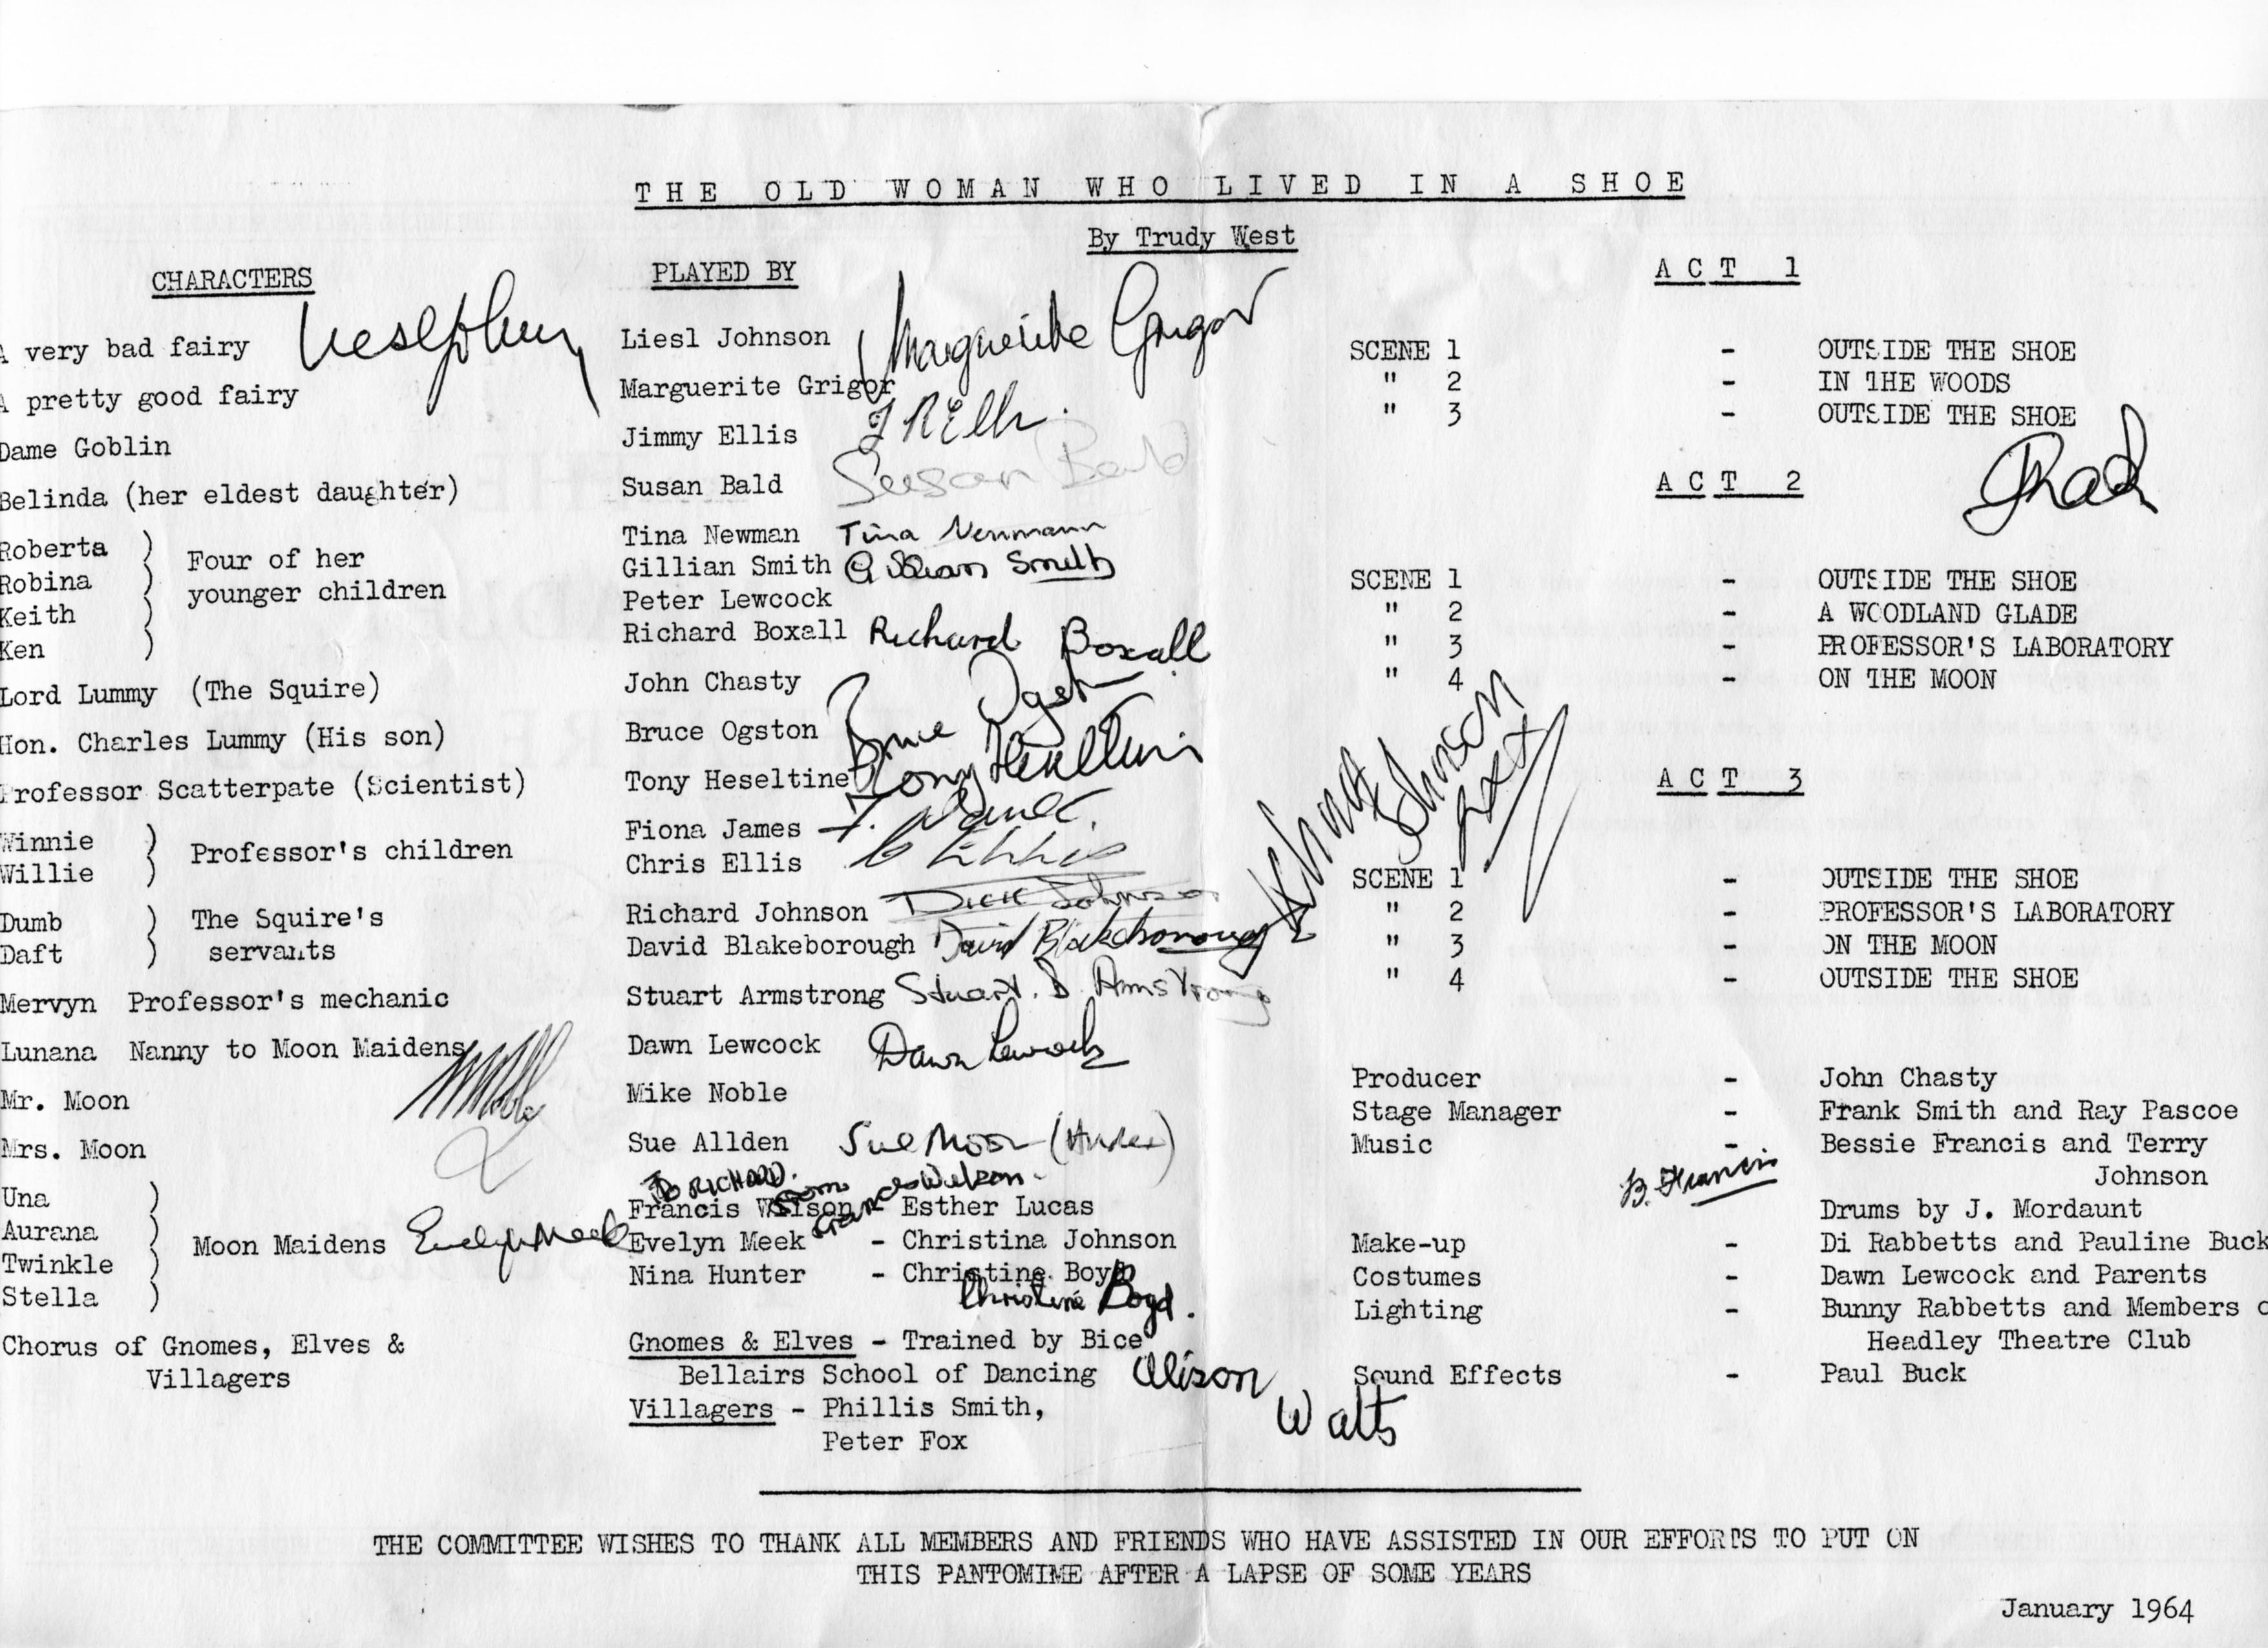 THE OLD WOMAN WHO LIVED IN A SHOE
By Trudy West
CHARACTERS
A very bad fairy
A pretty good fairy
Dame Goblin
Belinda (her eldest daughter)
Roberta ) Four of her
Robina ) younger children
Keith )
Ken )
Lord Lummy (The Squire)
Hon. Charles Lummy (His son)
Professor Scatterpate (Scientist)
Winnie ) Professor's children
Willie )
Dumb ) The Squire's
Daft ) servants
Mervyn Professor's mechanic
Lunana Nanny to Moon Maidens
Mr. Moon
Mrs. Moon
Una )
Aurana ) Moon Maidens Evelyn Meek
Twinkle )
Stella )
Chorus of Gnomes, Elves &
Villagers
PLAYED BY
Liesl Johnson Marguerite Grigor
Marguerite Grigor
Jimmy Ellis J R Ellis
Susan Bald Susan Bald
Tina Newman Tina Newmann
Gillian Smith Gillian Smith
Peter Lewcock
Richard Boxall Richard Boxall
John Chasty
Bruce Ogston Bruce Ogston
Tony Heseltine Tony Heseltine
Fiona James F. James.
Chris Ellis C Ellis
Richard Johnson Dick Johnson
David Blakeborough David Blakeborough
Stuart Armstrong Stuart. D. Armstrong
Dawn Lewcock Dawn Lewcock
Mike Noble
Sue Allden Sue Moon
TO RICHARD.
from
Francis Wilson - Esther Lucas
Evelyn Meek - Christina Johnson
Nina Hunter - Christine Boyd
Christine Boyd.
Gnomes & Elves - Trained by Bice
Bellairs School of Dancing
Alison Watts
Villagers - Phillis Smith,
Peter Fox
ACT 1
SCENE 1 - OUTSIDE THE SHOE
" 2 - IN THE WOODS
" 3 - OUTSIDE THE SHOE
ACT 2
SCENE 1 - OUTSIDE THE SHOE
" 2 - A WOODLAND GLADE
" 3 - PROFESSOR'S LABORATORY
" 4 - ON THE MOON
Johnson
xxx
ACT 3
SCENE 1 - OUTSIDE THE SHOE
" 2 - PROFESSOR'S LABORATORY
" 3 - ON THE MOON
" 4 - OUTSIDE THE SHOE
Producer - John Chasty
Stage Manager - Frank Smith and Ray Pascoe
Music - Bessie Francis and Terry
Johnson
B. Francis
Drums by J. Mordaunt
Make-up - Di Rabbetts and Pauline Buck
Costumes - Dawn Lewcock and Parents
Lighting - Bunny Rabbetts and Members o
Headley Theatre Club
Sound Effects - Paul Buck
THE COMMITTEE WISHES TO THANK ALL MEMBERS AND FRIENDS WHO HAVE ASSISTED IN OUR EFFORTS TO PUT ON
THIS PANTOMIME AFTER A LAPSE OF SOME YEARS
January 1964